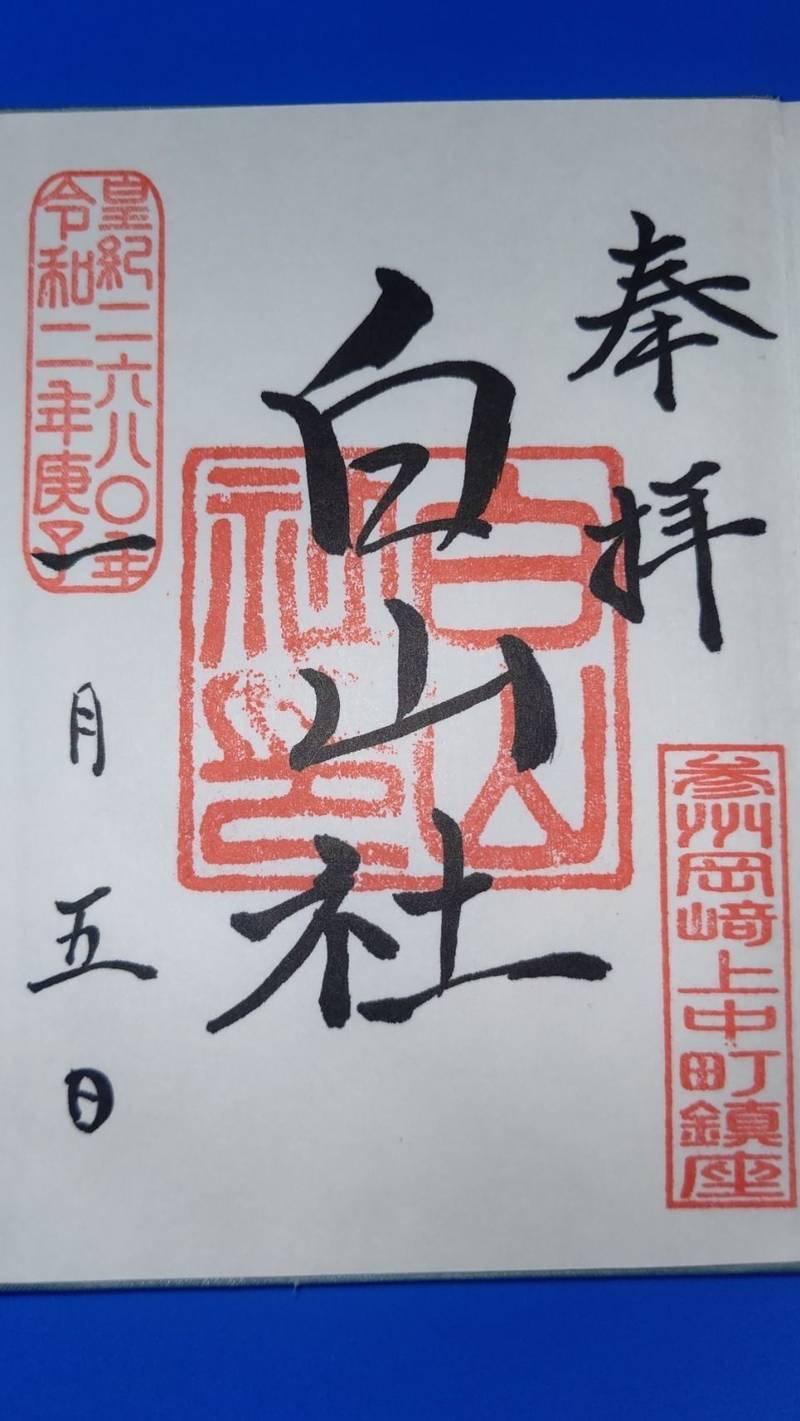 奉拝
参州岡﨑上中町鎮座
白山社
白山社印
皇紀二六八〇年
令和二年庚子
一月五日